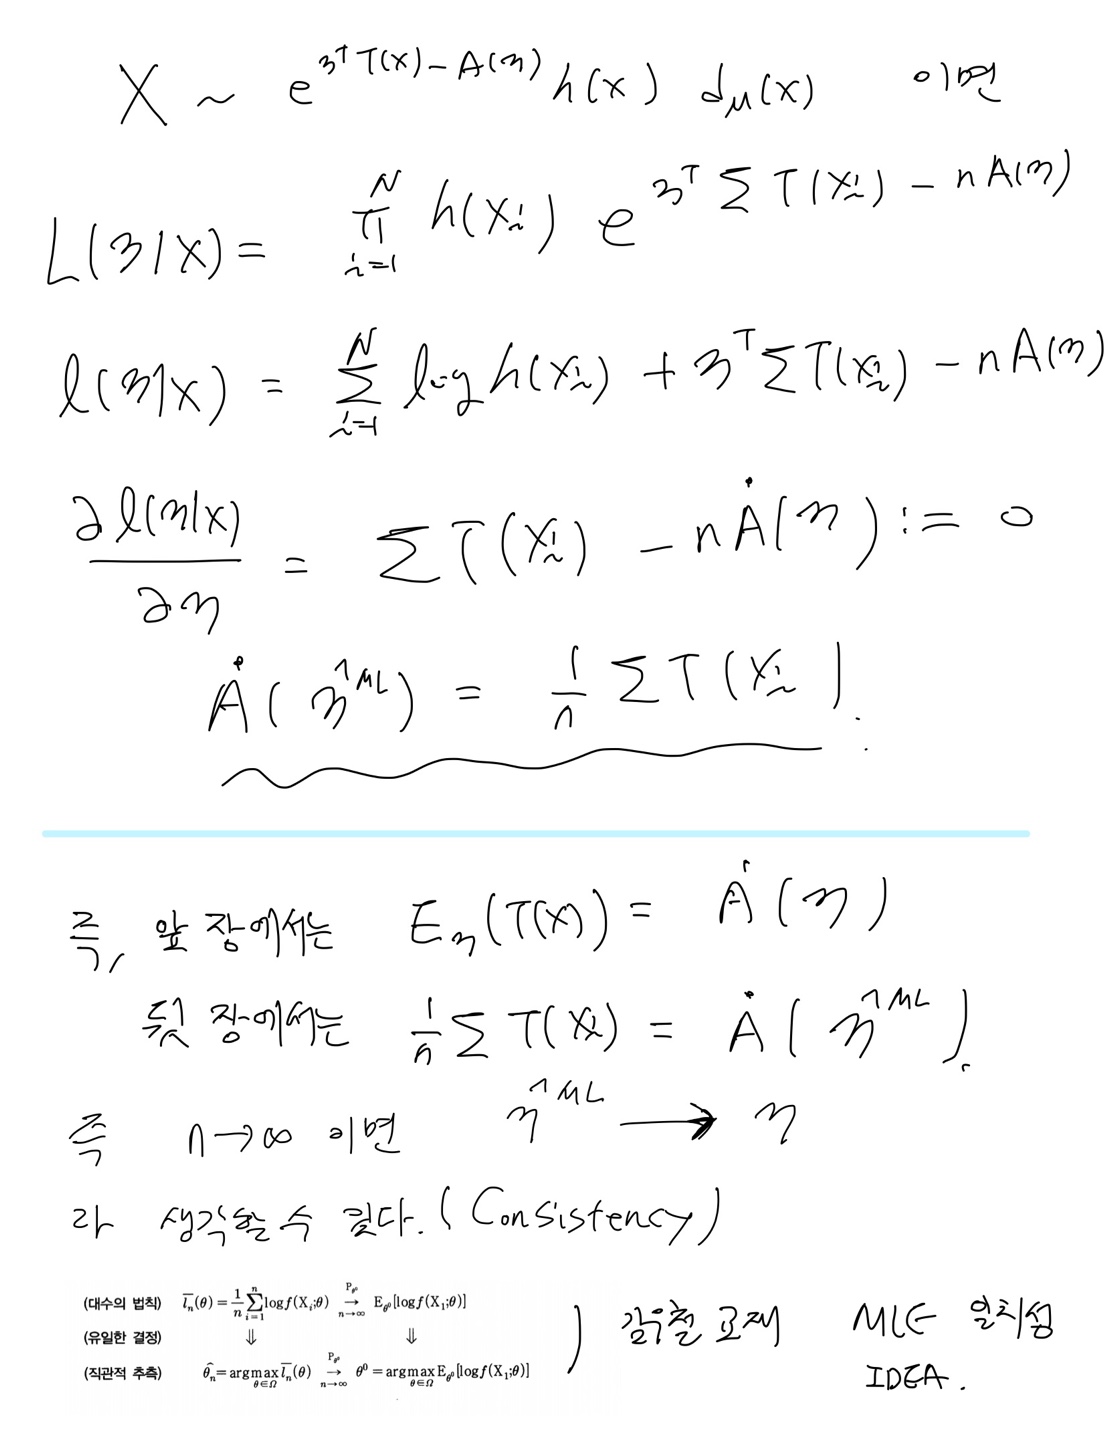 X ~ e^{η^T T(x) - A(η)} h(x) dμ(x) 이면
L(η|X) = ∏_{i=1}^{N} h(x_i) e^{η^T Σ T(x_i) - nA(η)}
l(η|x) = Σ_{i=1}^{N} log h(x_i) + η^T Σ T(x_i) - nA(η)
∂l(η|x)/∂η = Σ T(x_i) - nȦ(η) := 0
Ȧ(η̂^{ML}) = 1/n Σ T(x_i).
즉, 앞 장에서는 E_η(T(X)) = Ȧ(η)
뒷 장에서는 1/n Σ T(x_i) = Ȧ(η̂^{ML}).
즉 n→∞ 이면 η̂^{ML} → η
라 생각할 수 있다. (Consistency)
(대수의 법칙) \overline{l_n}(θ) = 1/n Σ_{i=1}^{n} log f(X_i;θ) →^{P_{θ^0}}_{n→∞} E_{θ^0}[log f(X_1;θ)]
(유일한 결정) ⇓ ⇓
(직관적 추측) \hat{θ}_n = argmax_{θ∈Ω} \overline{l_n}(θ) →^{P_{θ^0}}_{n→∞} θ^0 = argmax_{θ∈Ω} E_{θ^0}[log f(X_1;θ)]
) 김우철 교재 MLE 일치성
IDEA.